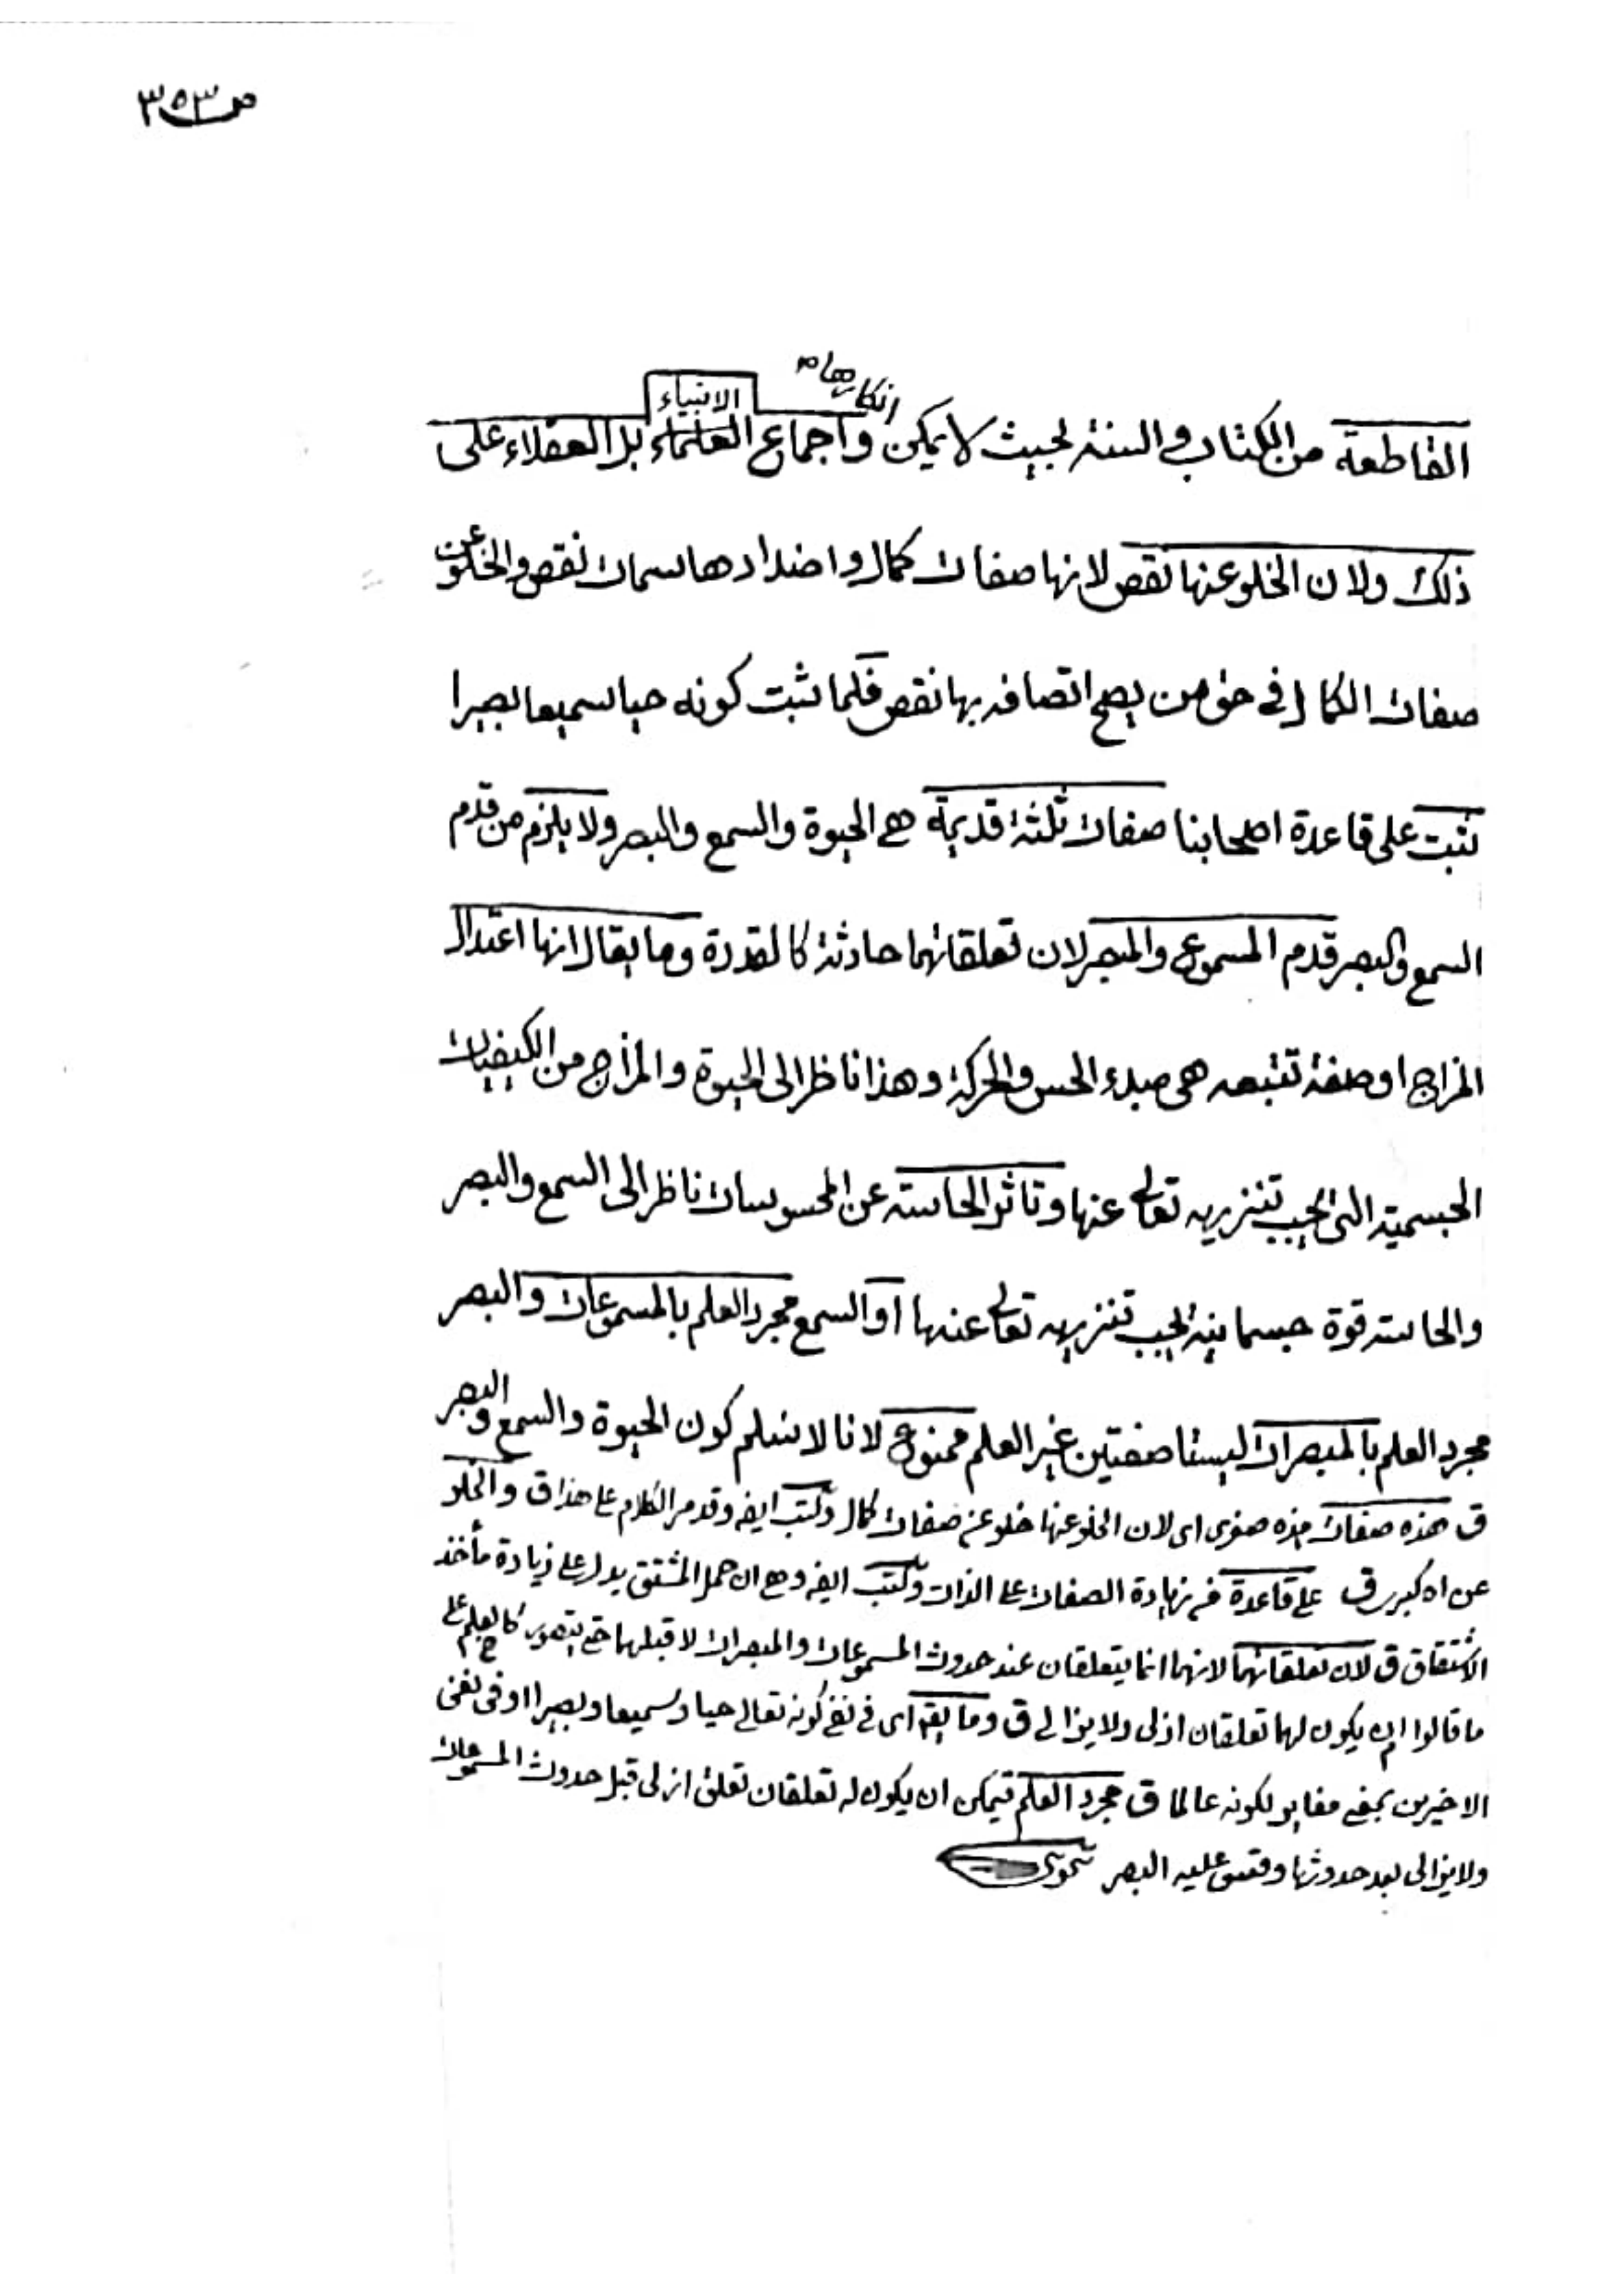 ص ٣٥٣
انكارها م
الانبياء
القاطعة من الكتاب والسنة بحيث لا يمكن واجماع العلماء بل العقلاء على
ذلك ولان الخلو عنها نقص لانها صفات كمال واضدادها سمات نقص والخلو عن
صفات الكمال في حق من يصح اتصافه بها نقص فلما ثبت كونه حيا سميعا بصيرا
ثبت على قاعدة اصحابنا صفات ثلثة قديمة هي الحيوة والسمع والبصر ولا يلزم من قدم
السمع والبصر قدم المسموع والمبصر لان تعلقاتهما حادثة كالقدرة وما يقال انها اعتدال
المزاج او صفة تتبعه هي مبدء الحس والحركة وهذا ناظر الى الحيوة والمزاج من الكيفيات
الجسمية التي يجب تنزيهه تعالى عنها وتاثر الحاسة عن المحسوسات ناظر الى السمع والبصر
والحاسة قوة جسمانية يجب تنزيهه تعالى عنها او السمع مجرد العلم بالمسموعات والبصر
مجرد العلم بالمبصرات ليستا صفتين غير العلم ممنوع لانا لا نسلم كون الحيوة والسمع والبصر
ق هذه صفات هذه صغرى اى لان الخلو عنها خلو عن صفات كمال وكتب ايضا وقد مر الكلام على هذا ق والخلو
عن اه كبرى ق على قاعدة في زيادة الصفات على الذات وكتب ايضا وهي ان حمل المشتق يدل على زيادة مأخذ
الاشتقاق ق لان تعلقاتهما لانهما انما يتعلقان عند حدوث المسموعات والمبصرات لا قبلهما كالعلم على
ما قالوا ان يكون لهما تعلقان ازلى ولا يزالى ق وما يقال اى في نفى كونه تعالى حيا وسميعا وبصيرا او في نفى
الاخيرين بمعنى مغاير لكونه عالما ق مجرد العلم فيمكن ان يكون له تعلقان تعلق ازلى قبل حدوث المسموعات
ولا يزالى بعد حدوثها وقس عليه البصر